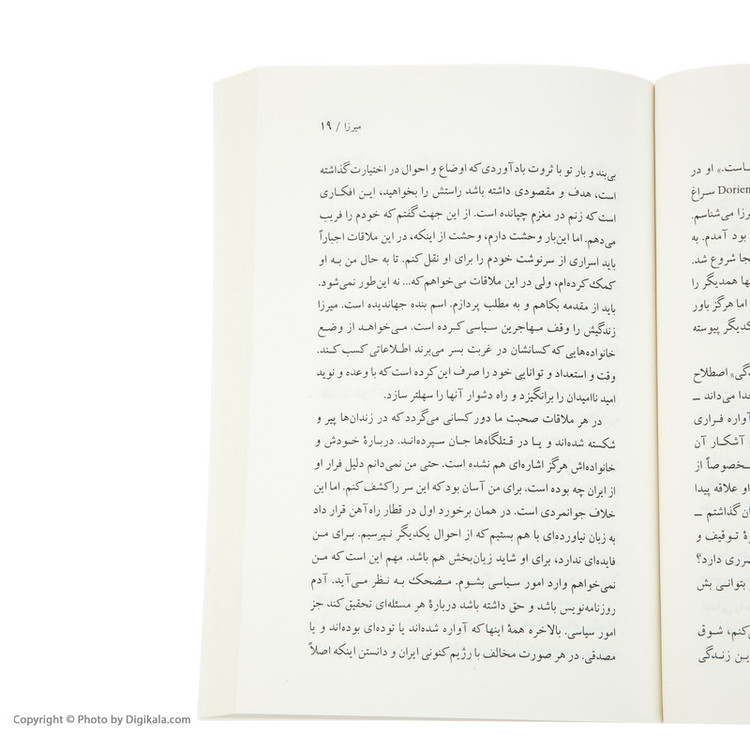 میرزا / ۱۹
بی‌بند و بار تو با ثروت بادآوردی که اوضاع و احوال در اختیارت گذاشته
است، هدف و مقصودی داشته باشد راستش را بخواهید، این افکاری
است که زنم در مغزم چپانده است. از این جهت گفتم که خودم را فریب
می‌دهم. اما این‌بار وحشت دارم، وحشت از اینکه، در این ملاقات اجباراً
باید اسراری از سرنوشت خودم را برای او نقل کنم. تا به حال من به او
کمک کرده‌ام، ولی در این ملاقات می‌خواهم که... نه این‌طور نمی‌شود.
باید از مقدمه بکاهم و به مطلب پردازم. اسم بنده جهاندیده است. میرزا
زندگیش را وقف مهاجرین سیاسی کرده است. می‌خواهد از وضع
خانواده‌هایی که کسانشان در غربت بسر می‌برند اطلاعاتی کسب کند.
وقت و استعداد و توانایی خود را صرف این کرده است که با وعده و نوید
امید ناامیدان را برانگیزد و راه دشوار آنها را سهلتر سازد.
در هر ملاقات صحبت ما دور کسانی می‌گردد که در زندان‌ها پیر و
شکسته شده‌اند و یا در قتلگاه‌ها جان سپرده‌اند. دربارهٔ خودش و
خانواده‌اش هرگز اشاره‌ای هم نشده است. حتی من نمی‌دانم دلیل فرار او
از ایران چه بوده است. برای من آسان بود که این سر را کشف کنم. اما این
خلاف جوانمردی است. در همان برخورد اول در قطار راه‌آهن قرار داد
به زبان نیاورده‌ای با هم بستیم که از احوال یکدیگر نپرسیم. برای من
فایده‌ای ندارد، برای او شاید زیان‌بخش هم باشد. مهم این است که من
نمی‌خواهم وارد امور سیاسی بشوم. مضحک به نظر می‌آید. آدم
روزنامه‌نویس باشد و حق داشته باشد دربارهٔ هر مسئله‌ای تحقیق کند جز
امور سیاسی. بالاخره همهٔ اینها که آواره شده‌اند یا توده‌ای بوده‌اند و یا
مصدقی. در هر صورت مخالف با رژیم کنونی ایران و دانستن اینکه اصلاً
است.» او در
Dorien سراغ
میرزا می‌شناسم.
بود آمدم. به
شروع شد.
همدیگر را
اما هرگز باور
یکدیگر پیوسته
اصطلاح
می‌داند ــ
آواره فراری
آشکار آن
مخصوصاً از
او علاقه پیدا
گذاشتم ــ
توقیف و
ضرری دارد؟
بتوانی بش
کنم، شوق
این زندگی
Copyright © Photo by Digikala.com